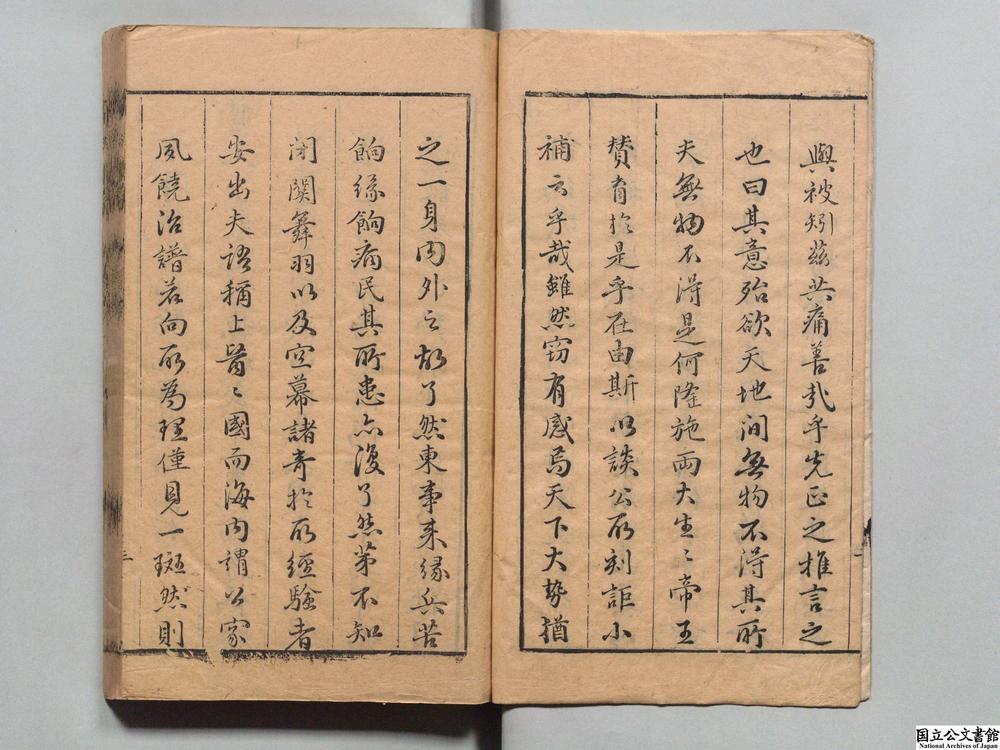 與被矧茲共痛善哉乎先正之推言之
也曰其意殆欲天地間無物不得其所
夫無物不得是何隆施兩大生〻帝王
贊育於是乎在由斯以談公所刻詎小
補云乎哉雖然窃有感焉天下大勢猶
之一身內外之故了然東事來緣兵苦
餉緣餉病民其所患亦復了然第不知
閉關舞羽以及空幕諸奇於所經驗者
安出夫語稱上醫〻國而海內謂公家
夙饒治譜若向所為理僅見一斑然則
三
国立公文書館
National Archives of Japan